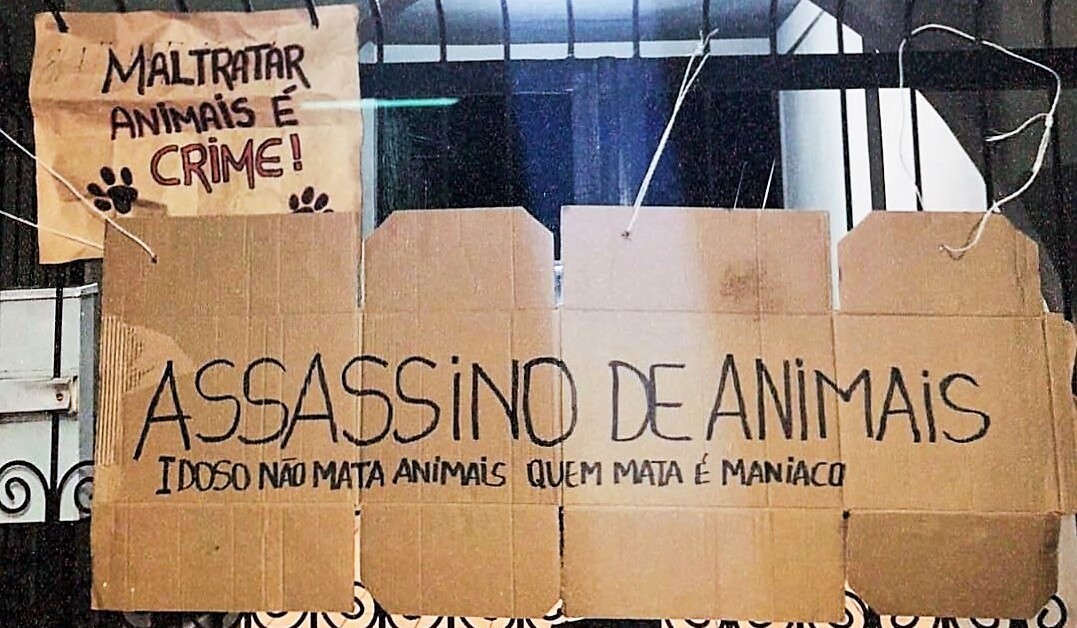 MALTRATAR
ANIMAIS É
CRIME!
ASSASSINO DE ANIMAIS
IDOSO NÃO MATA ANIMAIS QUEM MATA É MANIACO